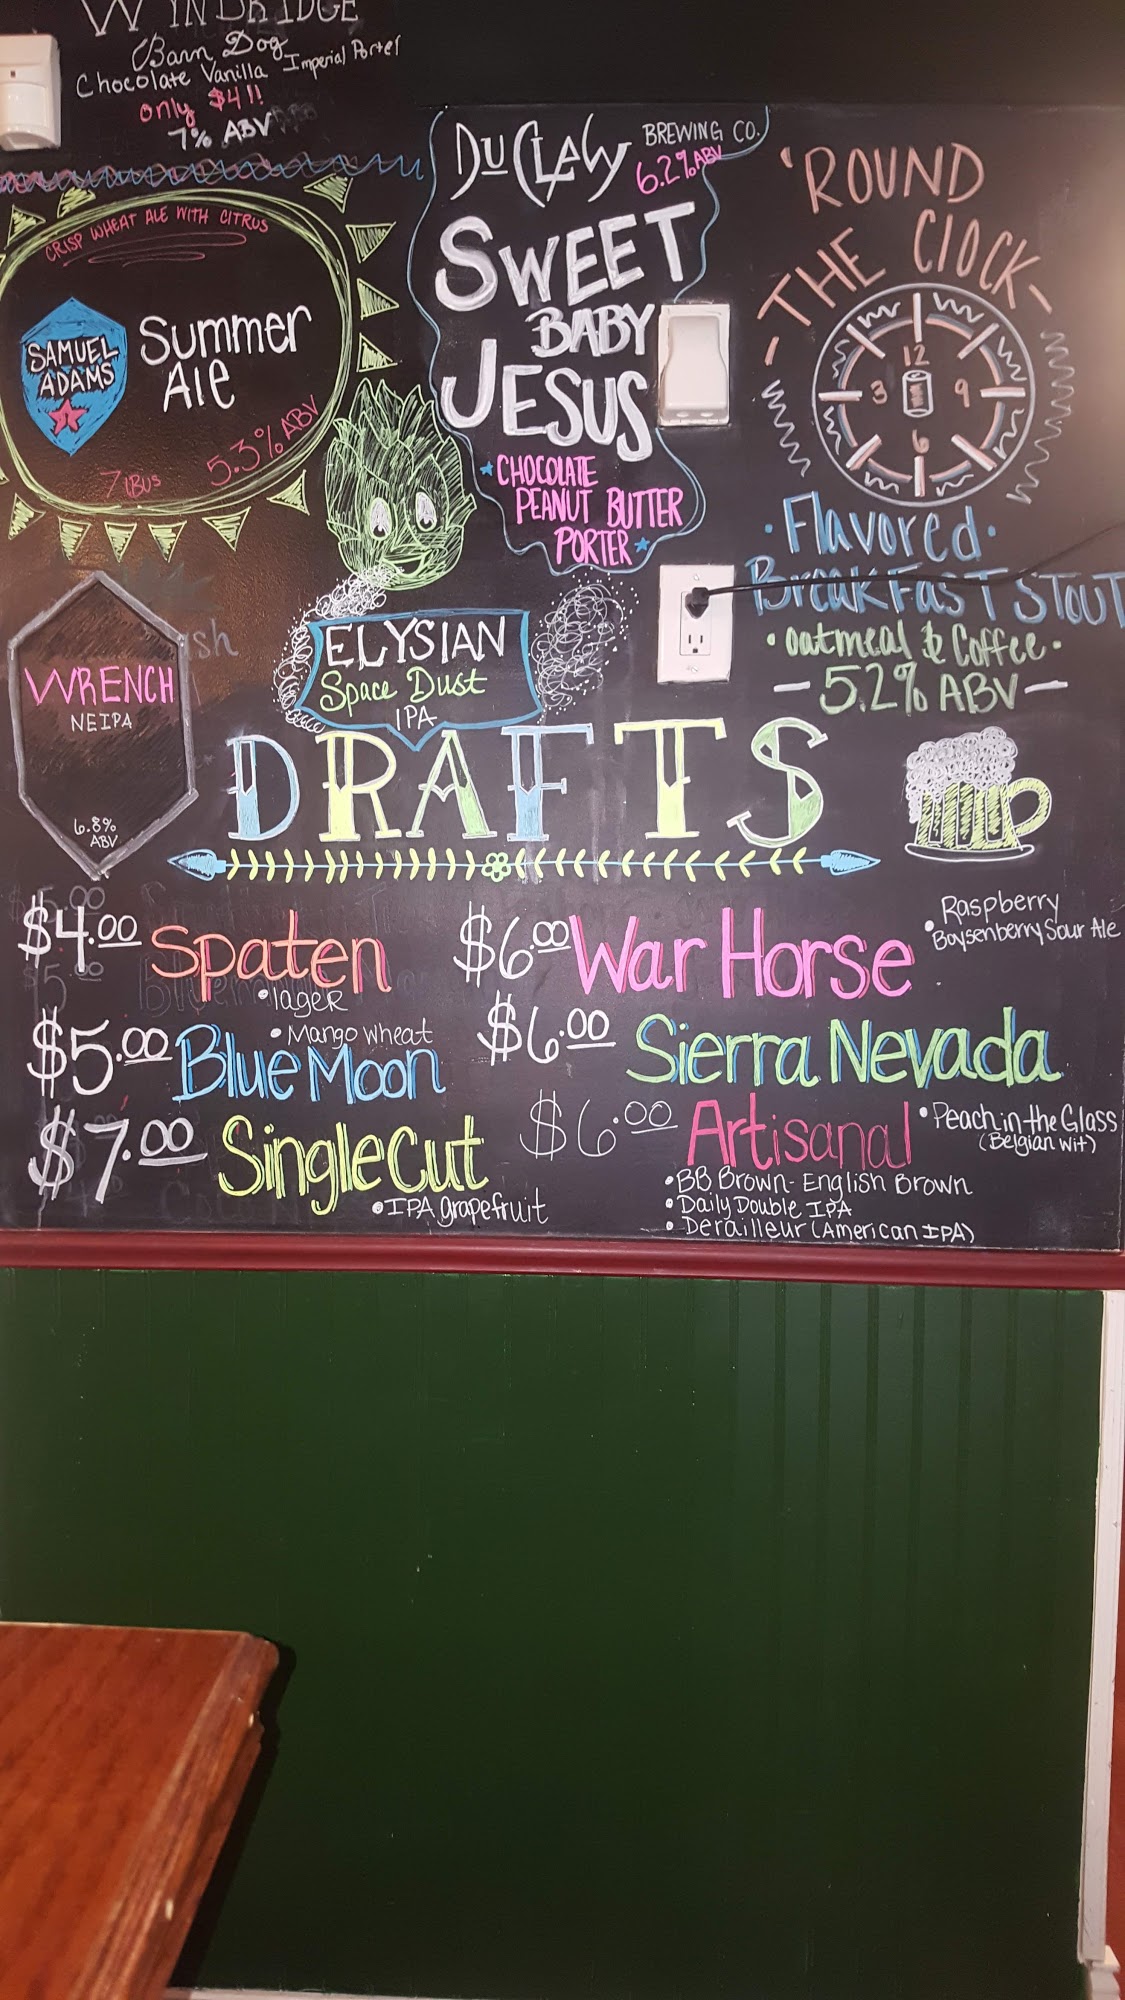 WYNBRIDGE
Barn Dog
Chocolate Vanilla Imperial Porter
only $4!!
7% ABV
CRISP WHEAT ALE WITH CITRUS
SAMUEL
ADAMS
Summer
Ale
7 IBUS
5.3% ABV
DuCLAW BREWING CO.
6.2% ABV
SWEET
BABY
JESUS
CHOCOLATE
PEANUT BUTTER
PORTER
'ROUND
-THE CLOCK-
12
3 9
6
·Flavored·
BreakFasT STouT
·oatmeal & Coffee·
-5.2% ABV-
WRENCH
NEIPA
6.8%
ABV
ELYSIAN
Space Dust
IPA
DRAFTS
$4.00 Spaten
•lager
$5.00 Blue Moon
•Mango wheat
$7.00 SingleCut
•IPA grapefruit
$6.00 War Horse
Raspberry
•Boysenberry Sour Ale
$6.00 Sierra Nevada
$6.00 Artisanal
•Peach in the Glass
(Belgian Wit)
•BB Brown - English Brown
•Daily Double IPA
•Derailleur (American IPA)